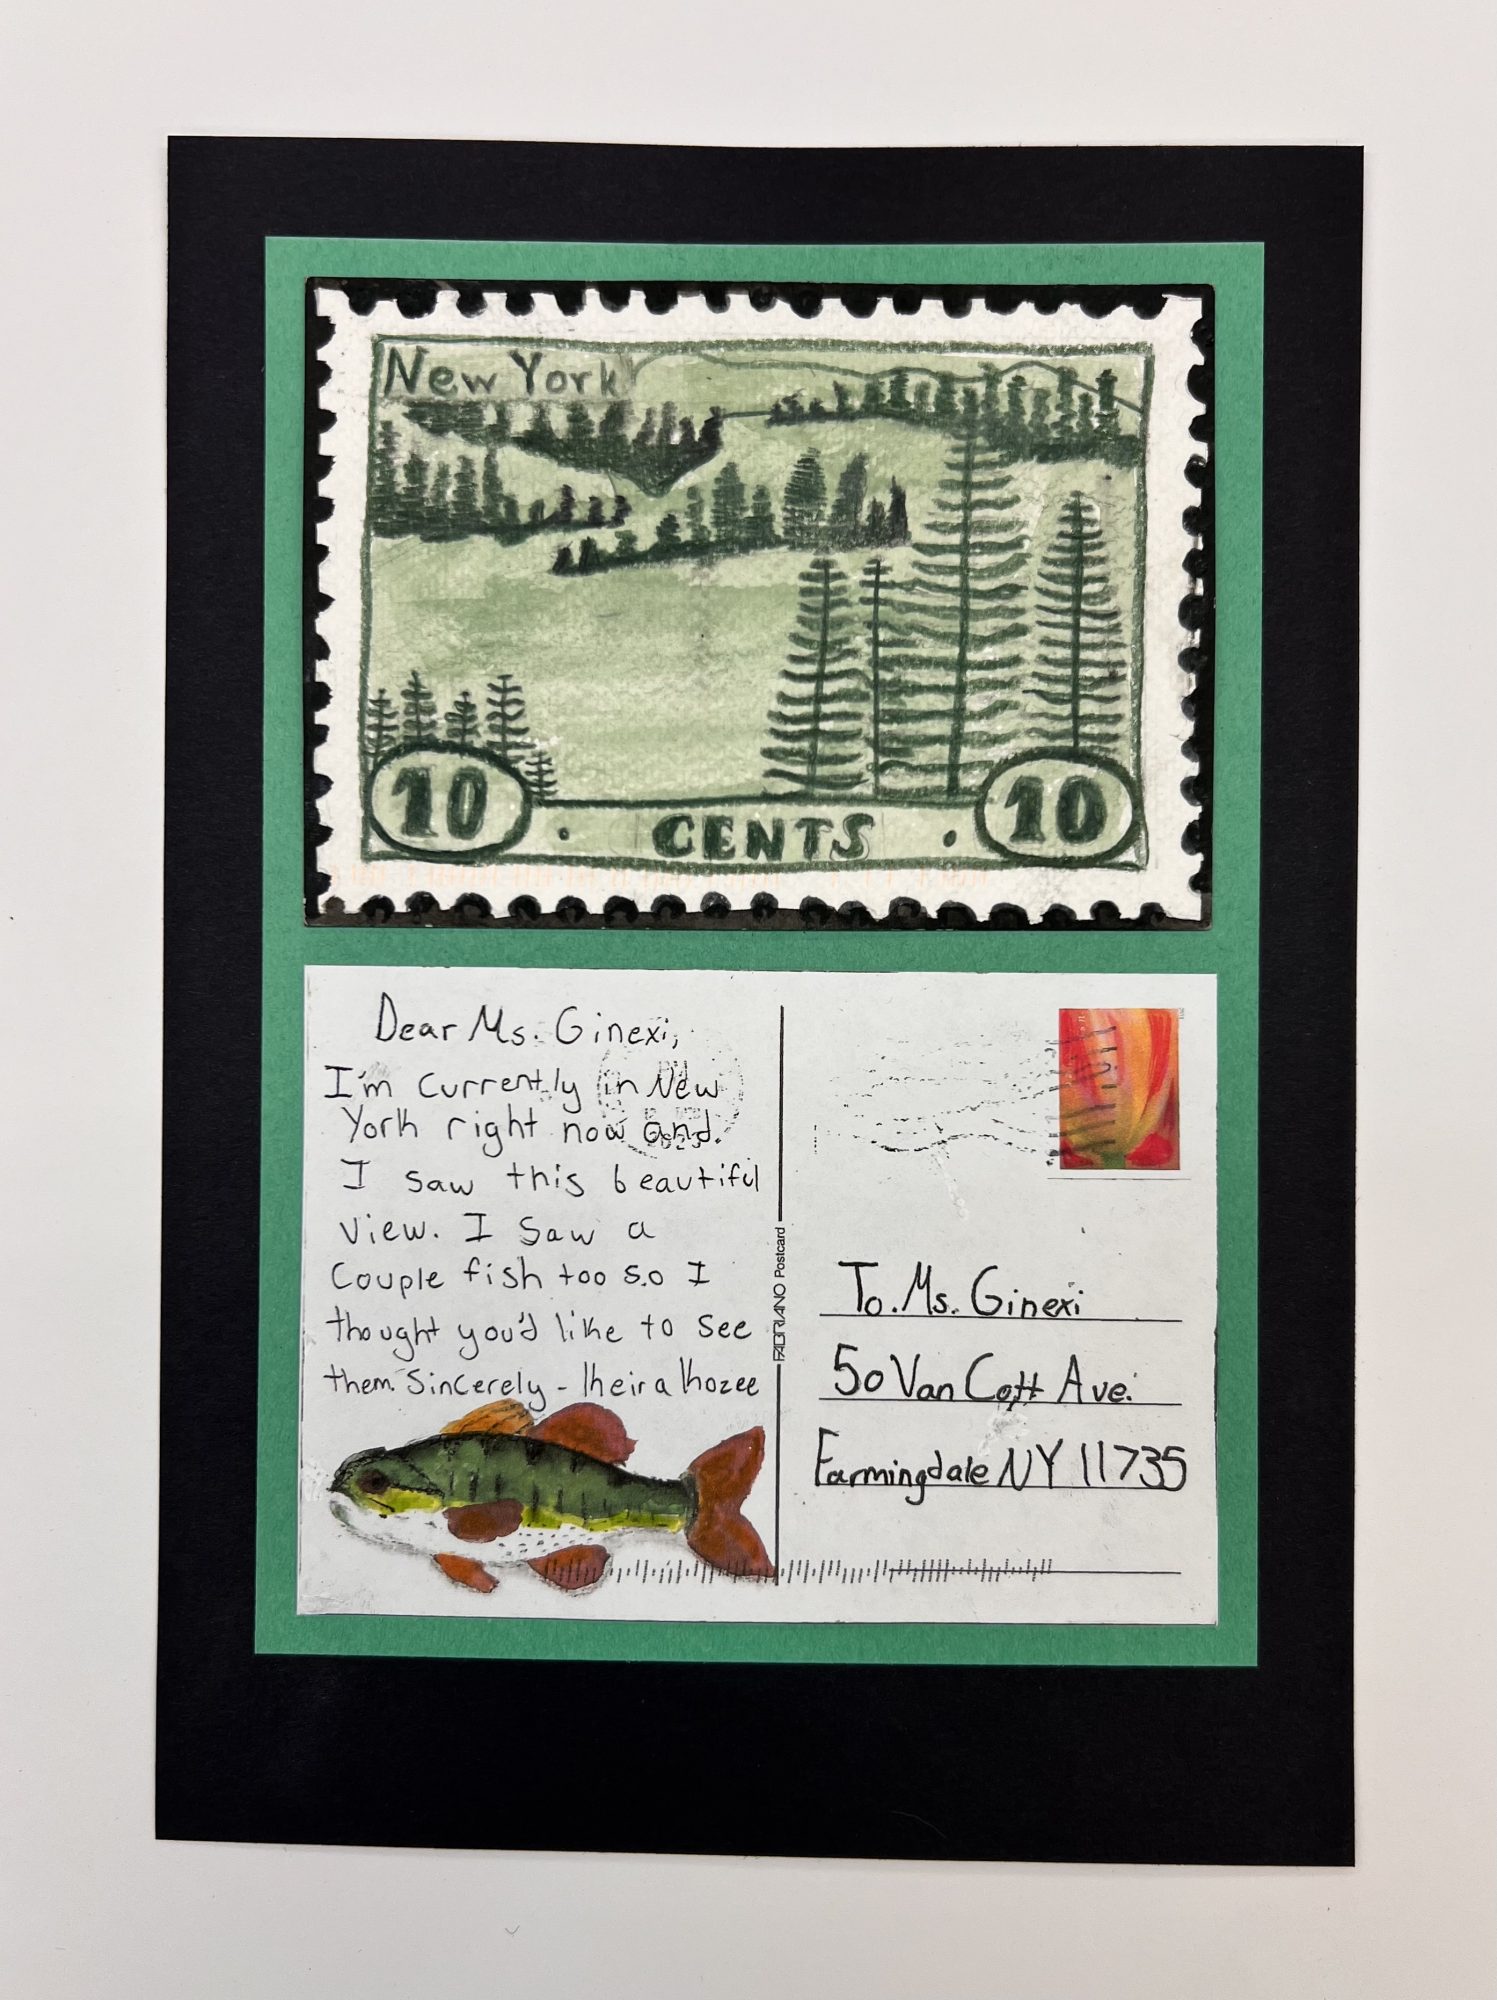 New York
10 . CENTS . 10
Dear Ms. Ginexi,
I'm currently in New
York right now and.
I saw this beautiful
view. I saw a
couple fish too so I
thought you'd like to see
them. Sincerely - Keira Kozee
FABRIANO Postcard
To. Ms. Ginexi
50 Van Cott Ave.
Farmingdale NY 11735